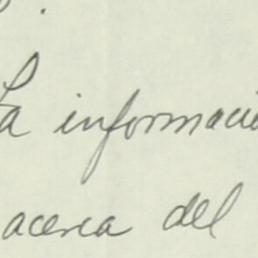 La informació
acerca del